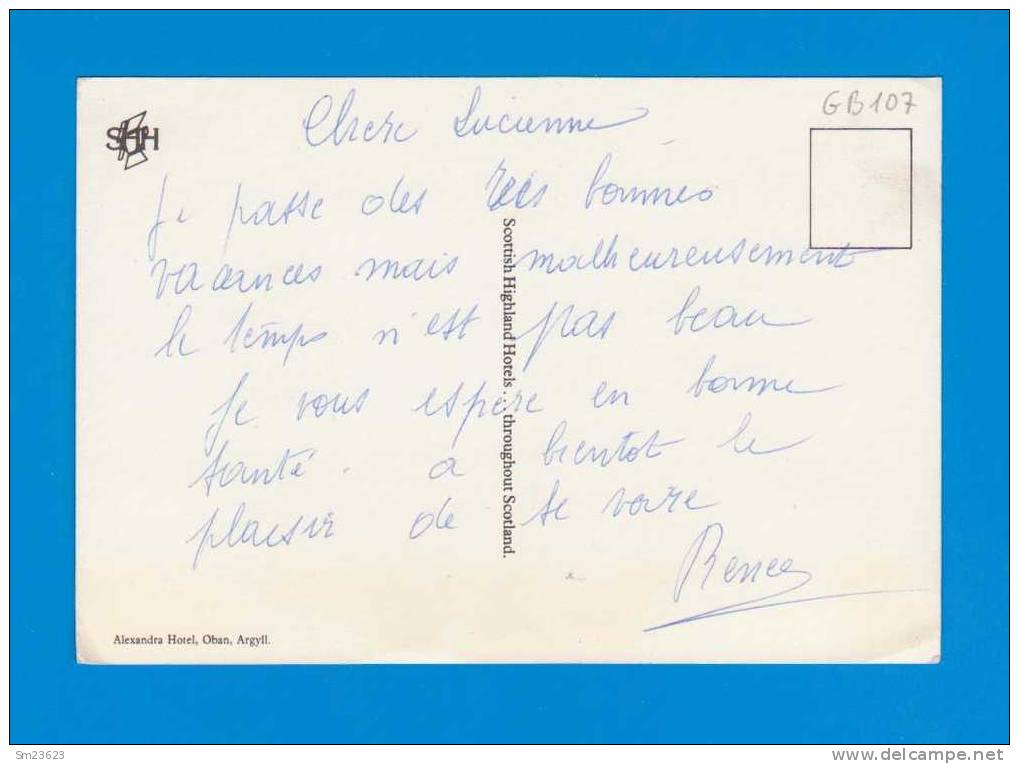 GB107
SHH
Chere Lucienne
Je passe des très bonnes
vacances mais malheureusement
le temps n'est pas beau
Je vous espère en bonne
santé. a bientot le
plaisir de se voire
Renee
Scottish Highland Hotels... throughout Scotland.
Alexandra Hotel, Oban, Argyll.
Sm23623
www.delcampe.net